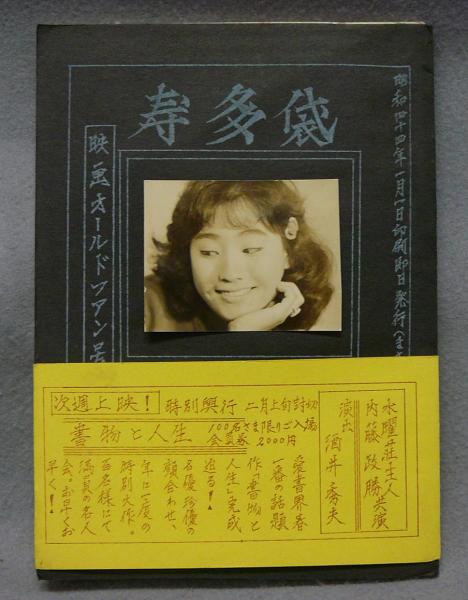 寿多袋
昭和四十四年一月一日印刷即日発行
映画オールドファン号
次週上映! 特別興行 二月上旬封切
書物と人生 100名さま限りご入場
会員券 2000円
水曜荘主人
内藤政勝 共演
演出 酒井秀夫
愛書界春
一番の話題
作「書物と
人生」完成
迫る!
名優珍優の
顔合わせ、
年に一度の
特別大作。
百名様にて
満員の名人
会。お早くお
早く!